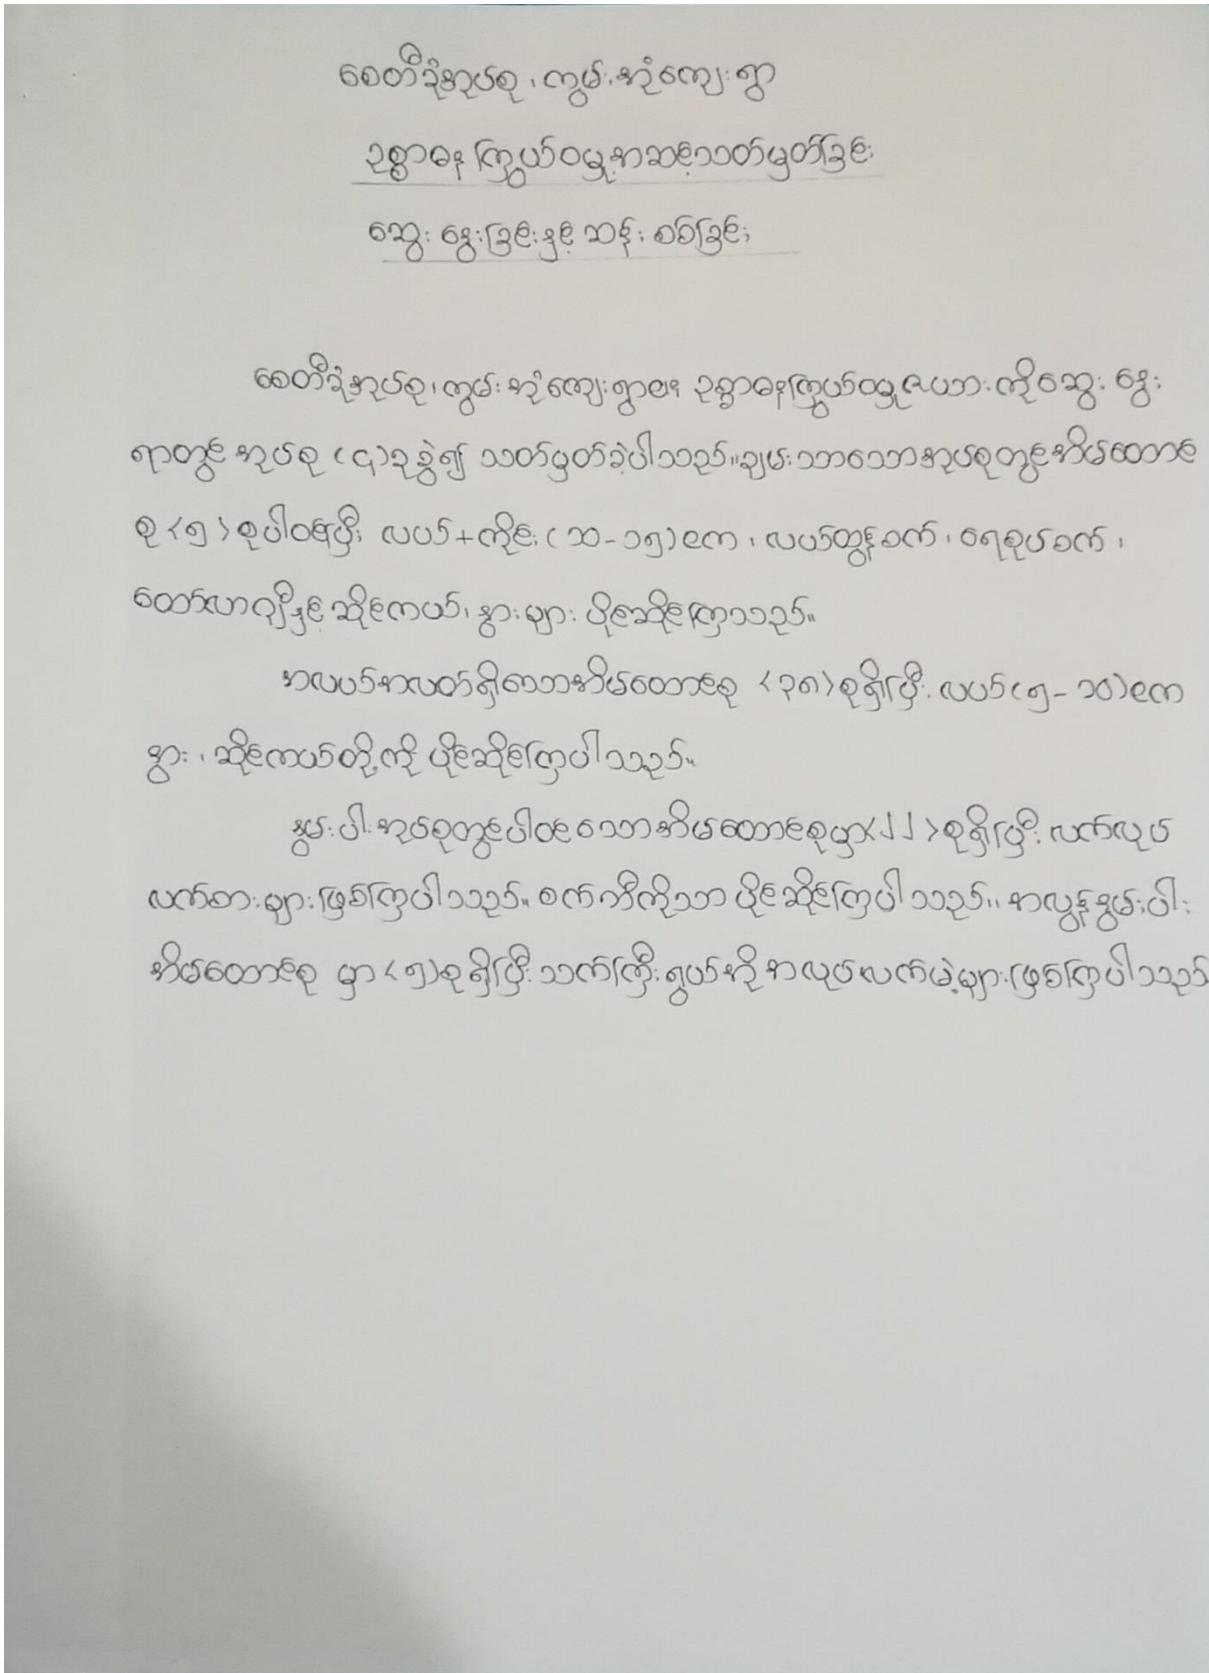 စေတီခုံအုပ်စု၊ ကွမ်းအုံကျေးရွာ
ဥစ္စာဓန ကြွယ်ဝမှုအဆင့်သတ်မှတ်ခြင်း
ဆွေးနွေးခြင်းနှင့် ဆန်းစစ်ခြင်း
စေတီခုံအုပ်စု၊ ကွမ်းအုံကျေးရွာ၏ ဥစ္စာဓနကြွယ်ဝမှုဇယားကို ဆွေးနွေး
ရာတွင် အုပ်စု (၄)ခုခွဲ၍ သတ်မှတ်ခဲ့ပါသည်။ ချမ်းသာသောအုပ်စုတွင် အိမ်ထောင်
စု (၅) စုပါဝင်ပြီး လယ်+ကိုင်း (၁၀-၁၅) ဧက၊ လယ်ထွန်စက်၊ ရေစုပ်စက်၊
ထော်လာဂျီနှင့် ဆိုင်ကယ်၊ နွားများ ပိုင်ဆိုင်ကြသည်။
အလယ်အလတ်ရှိသောအိမ်ထောင်စု (၃၈) စုရှိပြီး လယ်(၅-၁၀) ဧက
နွား၊ ဆိုင်ကယ်တို့ကို ပိုင်ဆိုင်ကြပါသည်။
နွမ်းပါးအုပ်စုတွင်ပါဝင်သောအိမ်ထောင်စုမှာ (၂၂) စုရှိပြီး လက်လုပ်
လက်စားများဖြစ်ကြပါသည်။ စက်ဘီးကိုသာ ပိုင်ဆိုင်ကြပါသည်။ အလွန်နွမ်းပါး
အိမ်ထောင်စု မှာ (၅) စုရှိပြီး သက်ကြီးရွယ်အို အလုပ်လက်မဲ့များဖြစ်ကြပါသည်